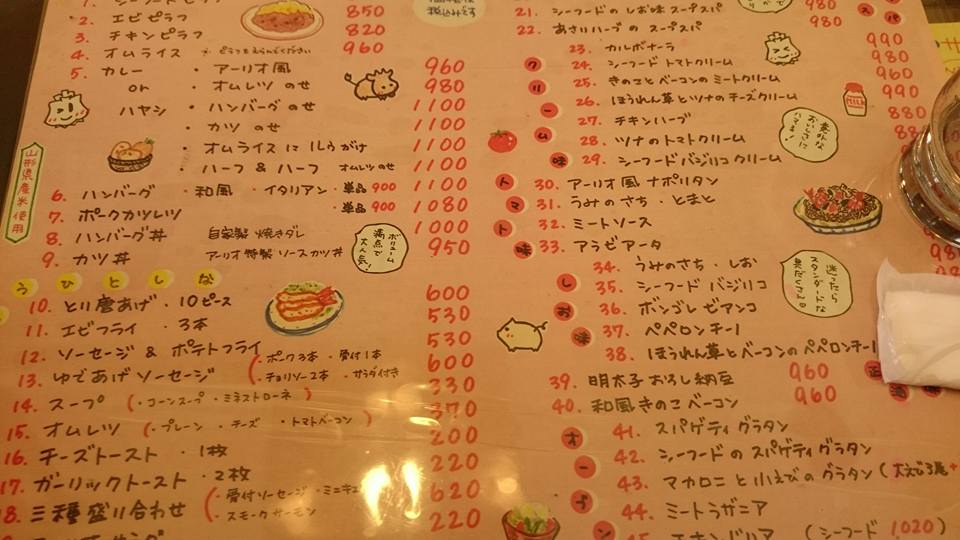 850
2. エビピラフ 820
3. チキンピラフ 960
4. オムライス
5. カレー ・アーリオ風 960
or ・オムレツ のせ 980
ハヤシ ・ハンバーグ のせ 1100
・カツ のせ 1100
・オムライスに 1100
・ハーフ & ハーフ オムレツのせ 1100
山形県産米使用
6. ハンバーグ ・和風 ・イタリアン ・単品 900 1100
7. ポークカツレツ ・単品 900 1080
8. ハンバーグ丼 自家製 焼きダレ 1000
9. カツ丼 アーリオ特製 ソースカツ丼 950
ボリューム満点で大人気!
もうひとしな
10. とり唐あげ・10ピース 600
11. エビフライ ・3本 530
12. ソーセージ & ポテトフライ 530
13. ゆであげソーセージ (・ポーク3本 ・骨付1本 600
・チョリソー2本 ・サラダ付き
14. スープ (・コーンスープ ・ミネストローネ) 330
15. オムレツ (・プレーン ・チーズ ・トマトベーコン) 370
16. チーズトースト ・1枚 200
17. ガーリックトースト ・2枚 220
18. 三種盛り合わせ (・骨付ソーセージ 620
・スモークサーモン
220
21. シーフードのしお味 スープスパ 980
22. あさりハーブの スープスパ 980
スパ
クリーム味
23. カルボナーラ 990
24. シーフード トマトクリーム 980
25. きのことベーコンのミートクリーム 960
26. ほうれん草とツナのチーズクリーム 990
27. チキンハーブ 880
28. ツナのトマトクリーム
29. シーフード バジリコ クリーム
MILK
意外なおいしさにハマる!
トマト味
30. アーリオ風 ナポリタン
31. うみのさち・とまと
32. ミートソース
33. アラビアータ
しお味
34. うみのさち・しお
35. シーフード バジリコ
36. ボンゴレ ビアンコ
37. ペペロンチーノ
38. ほうれん草とベーコンのペペロンチーノ
迷ったらスタンダードな
39. 明太子 おろし納豆 960
40. 和風きのこベーコン 960
オーブン
41. スパゲティグラタン
42. シーフードの スパゲティグラタン
43. マカロニ と 小えびのグラタン (大えび3尾+
44. ミートラザニア
(シーフード 1020)